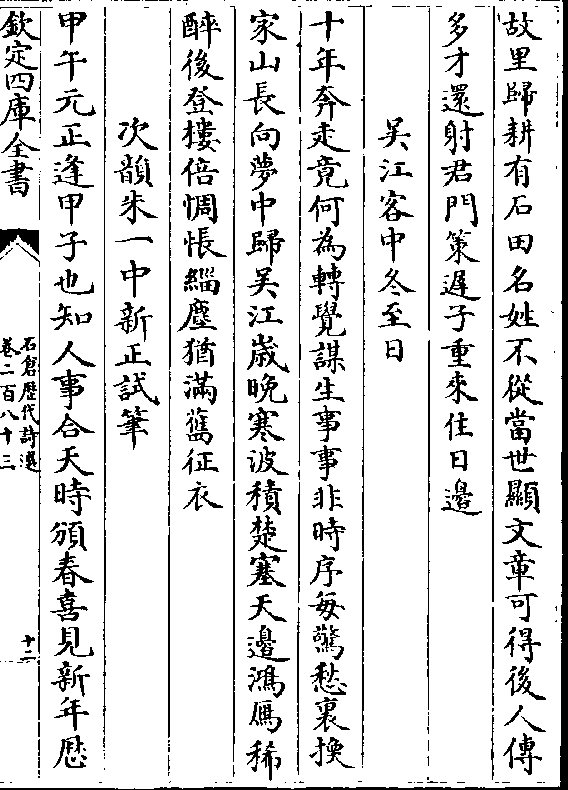 故里歸耕有石田名姓不從當世顯文章可得後人傳
多才還射君門策遲子重來住日邊
吴江客中冬至日
十年奔走竟何為轉覺謀生事事非時序每驚愁裏換
家山長向夢中歸吴江歲晚寒波積楚塞天邊鴻鴈稀
醉後登樓倍惆悵緇塵猶滿舊征衣
次韻朱一中新正試筆
甲午元正逢甲子也知人事合天時頒春喜見新年厯
欽定四庫全書
石倉歷代詩選
卷二百八十三
十二